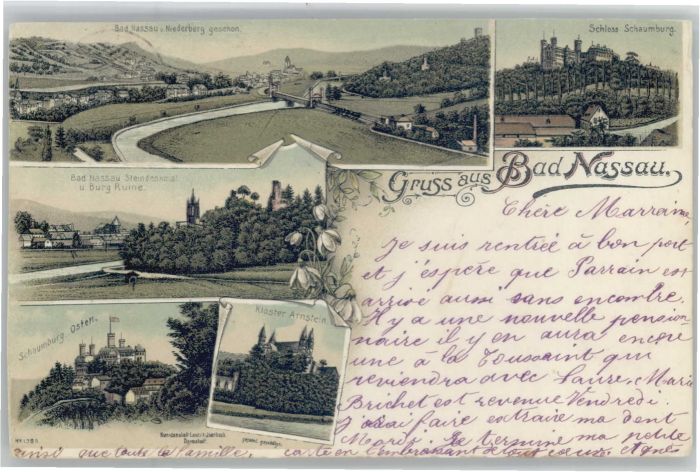 Bad Nassau v. Niederberg gesehen.
Schloss Schaumburg.
Bad Nassau Steindenkmal
u Burg Ruine.
Gruss aus Bad Nassau.
Schaumburg Osten.
Kloster Arnstein.
Chère Marraine,
Je suis rentrée à bon port
et j'espère que Parrain est
arrivé aussi sans encombre.
Il y a une nouvelle pension-
naire il y en aura encore
une à la Toussaint qui
reviendra avec Laure. Marie
Brichet est revenue Vendredi.
J'irai faire extraire ma dent
Mardi. Je termine ma petite
carte en t'embrassant de tout cœur
ainsi que toute la famille.
Agnès